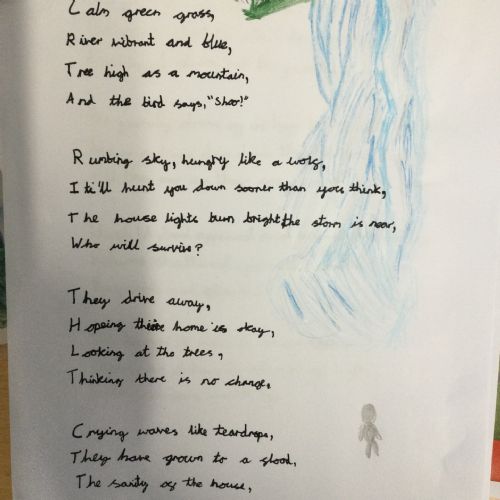 Calm green grass,
River vibrant and blue,
Tree high as a mountain,
And the bird says, "Shoo!"
Rumbing sky, hungry like a wolf,
It'll hunt you down sooner than you think,
The house lights burn bright, the storm is near,
Who will survive?
They drive away,
Hopeing their home is okay,
Looking at the trees,
Thinking there is no change,
Crying waves like teardrops,
They have grown to a flood,
The sanity of the house,